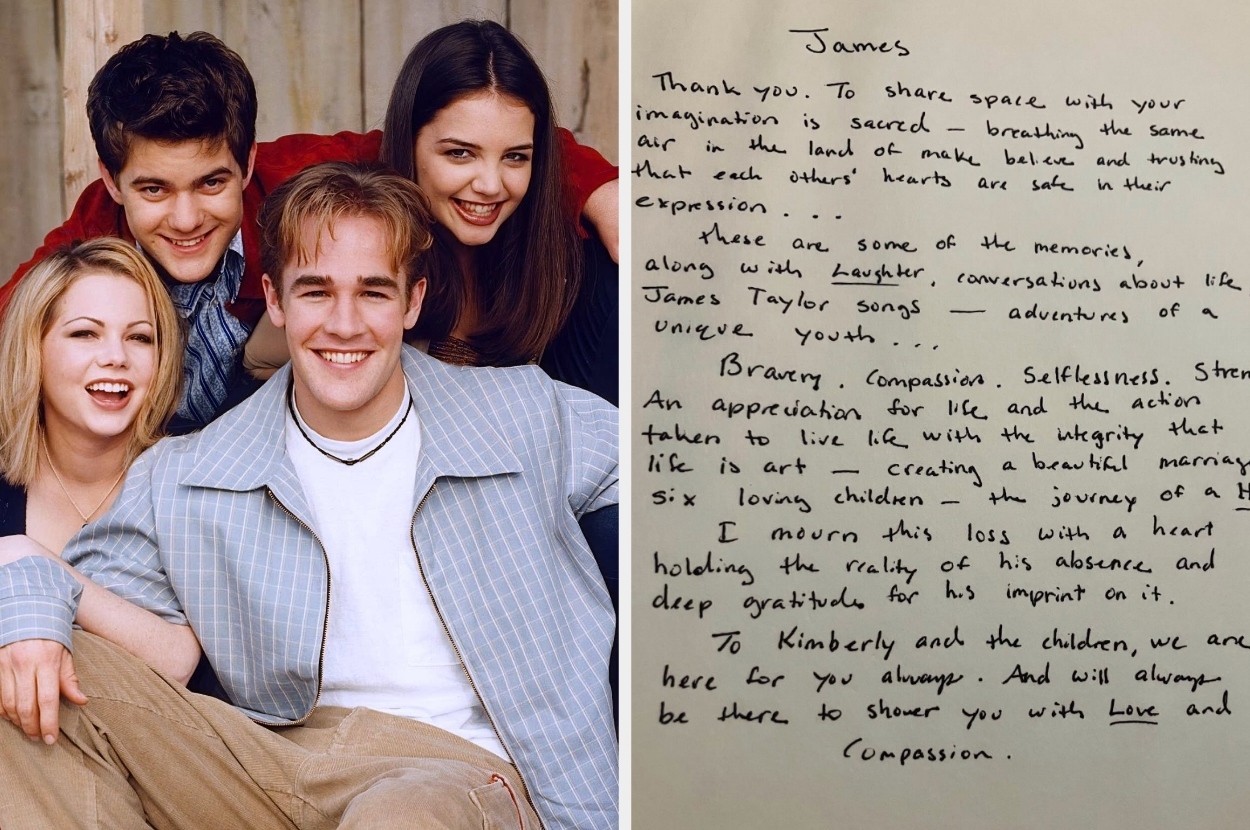 James
Thank you. To share space with your
imagination is sacred — breathing the same
air in the land of make believe and trusting
that each others' hearts are safe in their
expression . . .
these are some of the memories,
along with Laughter, conversations about life
James Taylor songs — adventures of a
unique youth . . .
Bravery. Compassion. Selflessness. Stren
An appreciation for life and the action
taken to live life with the integrity that
life is art — creating a beautiful marriag
six loving children — the journey of a H
I mourn this loss with a heart
holding the reality of his absence and
deep gratitude for his imprint on it.
To Kimberly and the children, we are
here for you always. And will always
be there to shower you with Love and
Compassion.